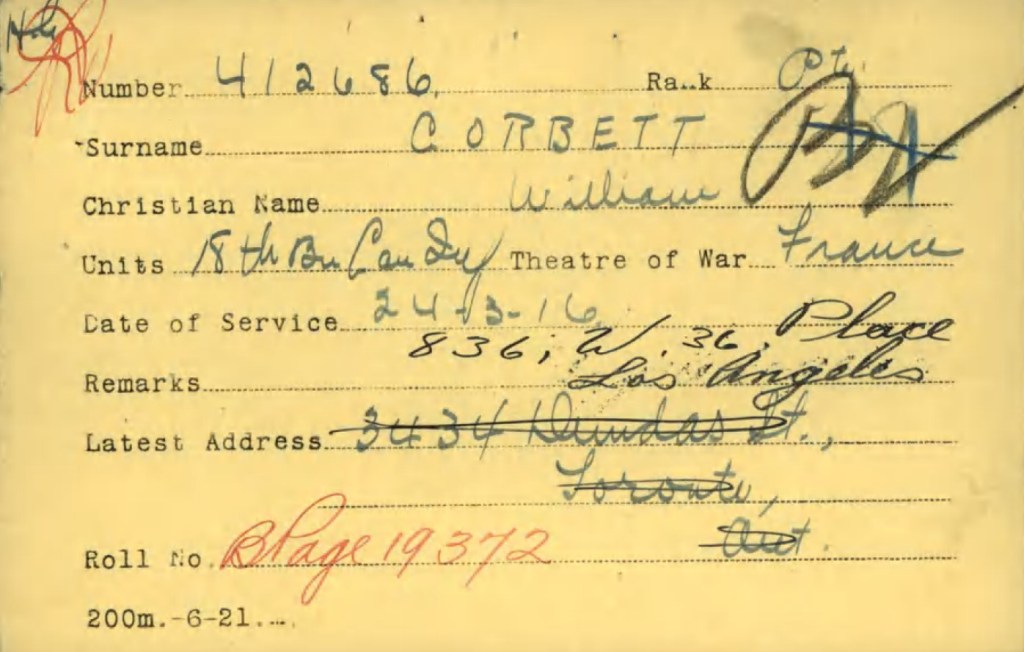 Number 412686. Rank Pt.
Surname CORBETT
Christian Name William
Units 18th Bn Can Inf Theatre of War France
Date of Service 24-3-16
836, W. 36. Place
Remarks Los Angeles
Latest Address 3434 Dundas St.,
Toronto,
Ont.
Roll No. B Page 19372
200m.-6-21.